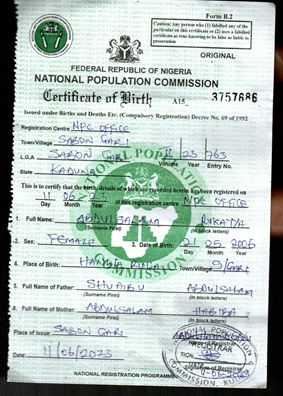 Form B.2
Caution: Any person who (1) falsified any of the
particular on this certificate or (2) uses a falsified
certificate as true knowing to be false is liable to
prosecution
ORIGINAL
FEDERAL REPUBLIC OF NIGERIA
NATIONAL POPULATION COMMISSION
Certificate of Birth A15 3757686
Issued under Births and Deaths Etc. (Compulsory Registration) Decree No. 69 of 1992
Registration Centre NPC OFFICE
Town/Village SABON GARI
L.G.A SABON GARI 11 03 763
Volume Year Entry No.
State KADUNA
This is to certify that the birth, details of which are recorded herein has been registered on
11 06 NPC OFFICE
Day Month Year at this registration centre
1. Full Name: ABDULSALAM
(Surname First) (In block letters)
2. Sex: FEMALE 3. Date of Birth: 21 05 2006
Day Month Year
4. Place of Birth: Town/Village S/GARI
5. Full Name of Father: SHUAIBU ABDULSALAM
(Surname First) (In block letters)
6. Full Name of Mother: ABDULSALAM HABIBA
(Surname First) (In block letters)
Place of Issue: SABON GARI
Name of Registrar
Date 11/06/2023
REGISTRAR
SIGN
Signature of Registrar
COMMISSION
NATIONAL REGISTRATION PROGRAMME